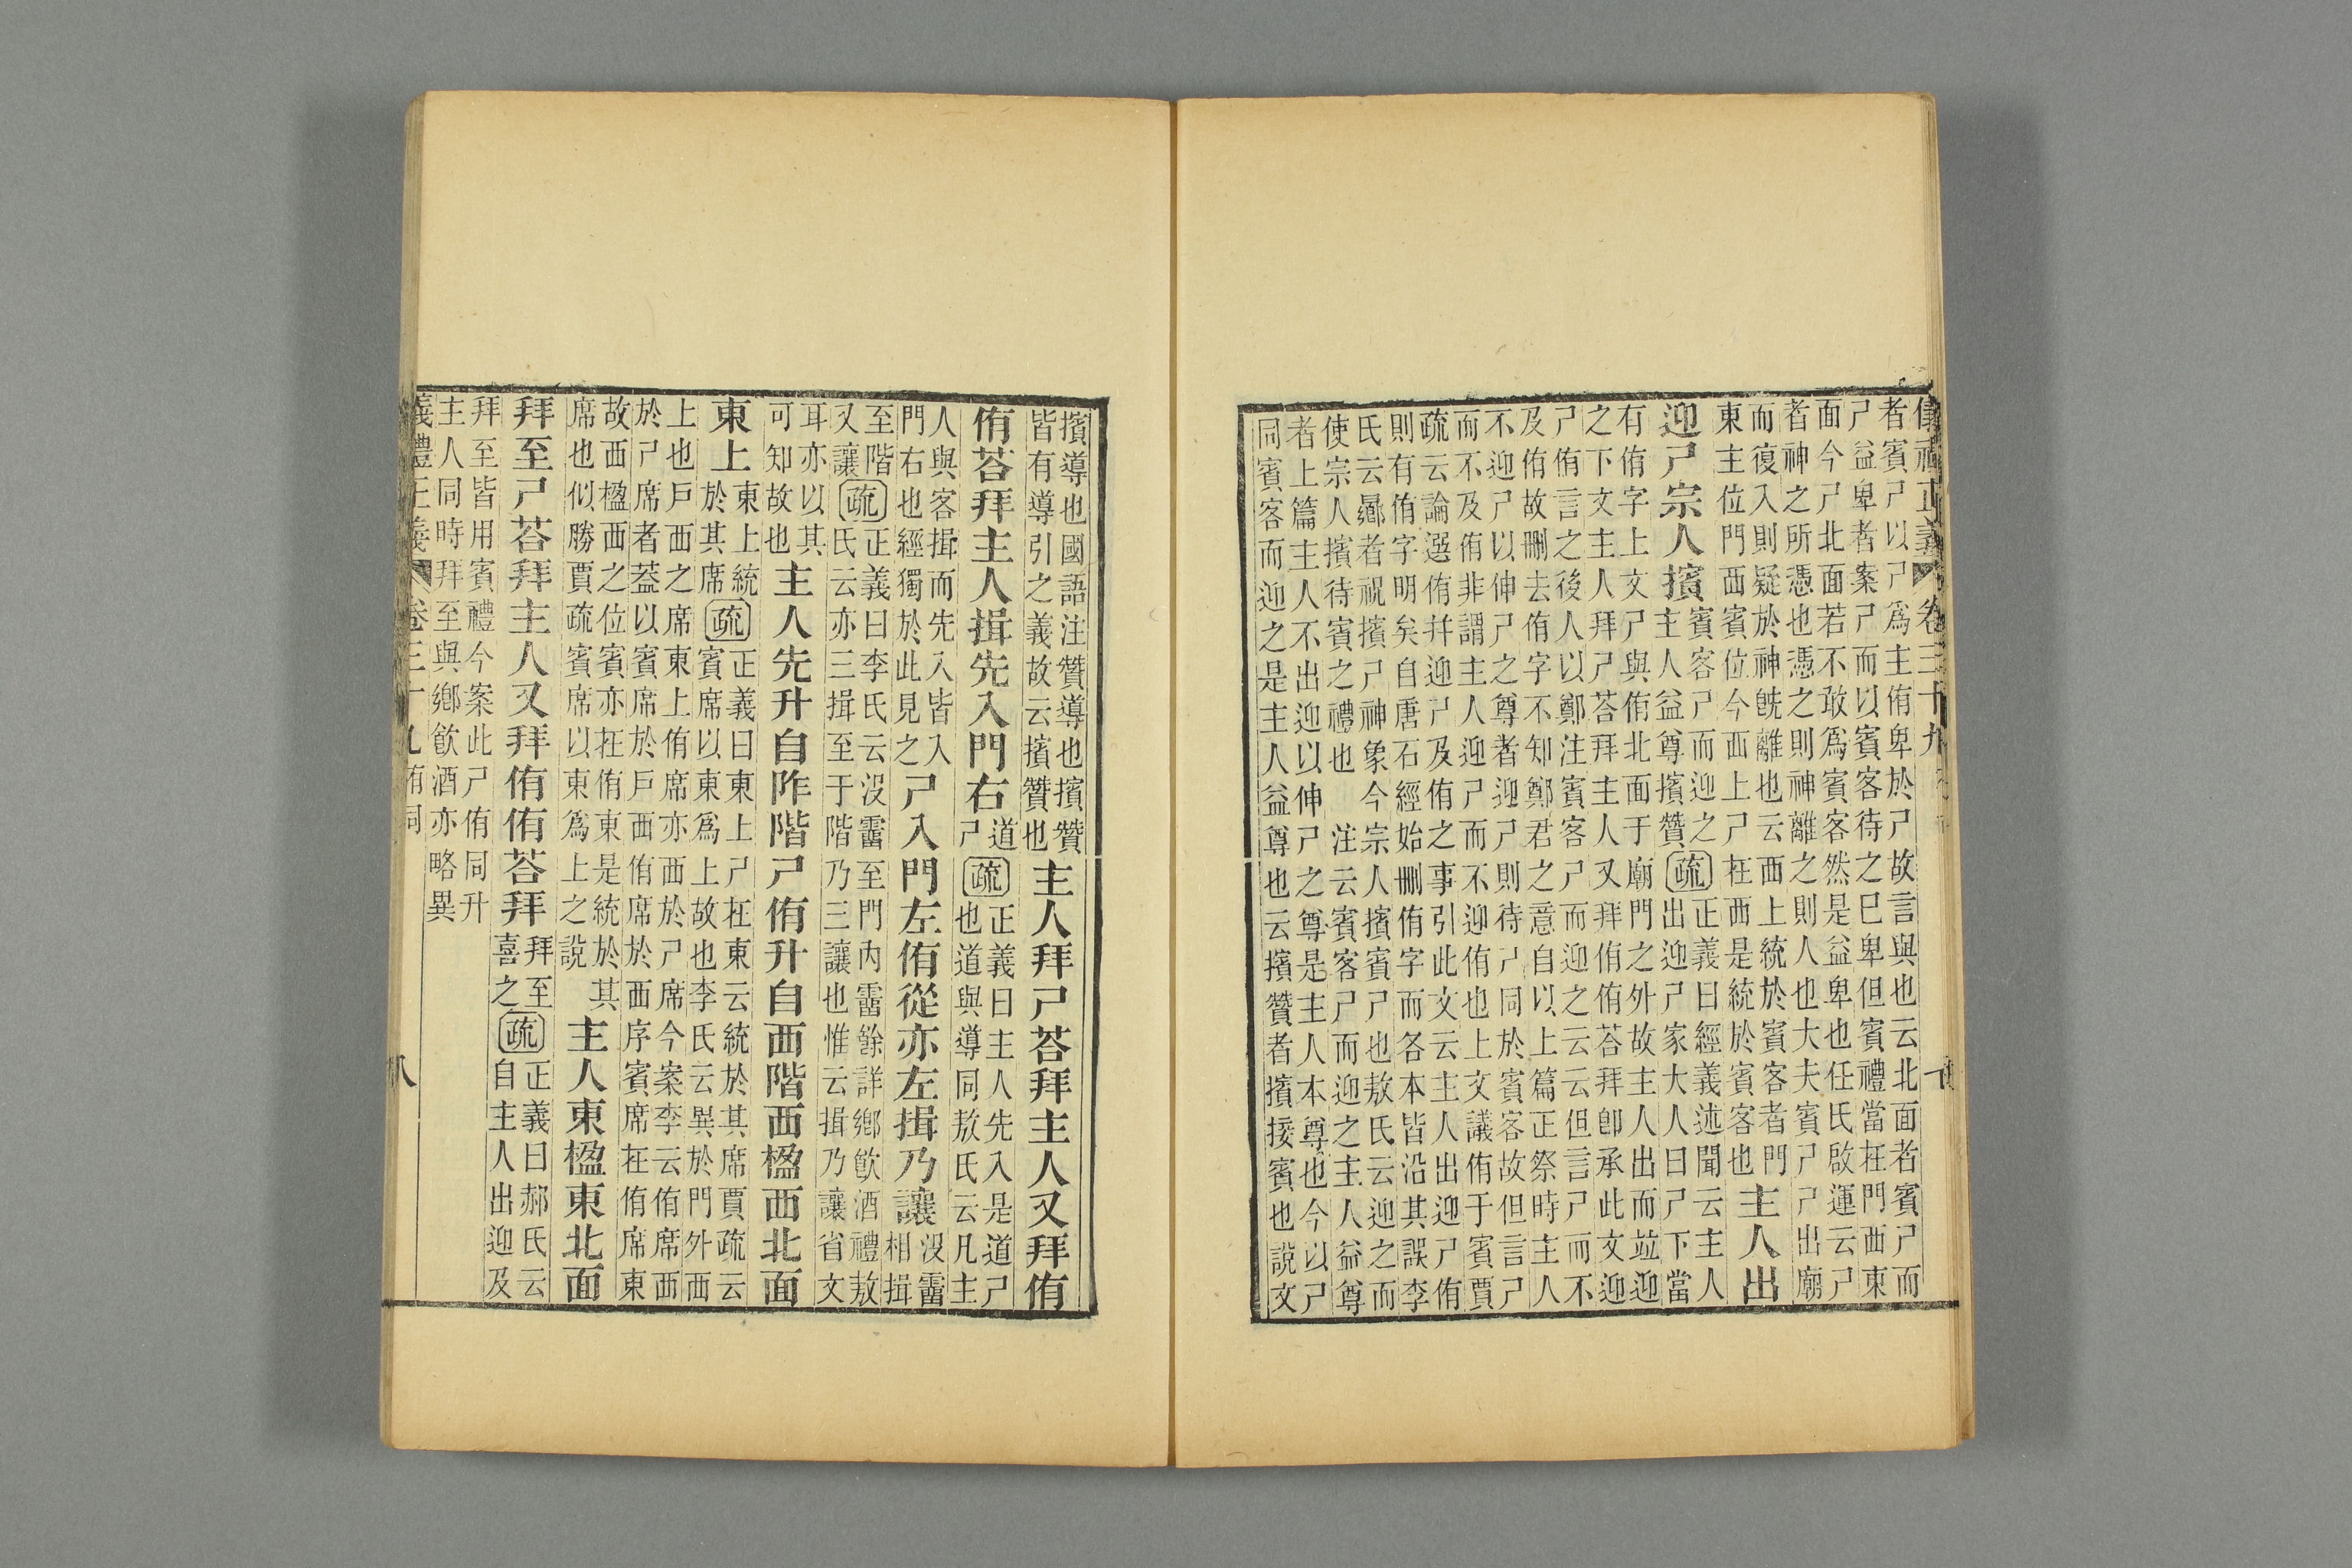 儀禮正義 卷三十九
者賓尸以尸爲主侑卑於尸故言與也云北面者賓尸而
尸益卑者案尸而以賓客待之巳卑但賓禮當在門西東
面今尸北面若不敢爲賓客然是益卑也任氏啟運云尸
者神之所憑也憑之則神離之則人也大夫賓尸尸出廟
而復入則疑於神旣離也云西上統於賓客者門
東主位門西賓位今西上尸在西是統於賓客也
主人出
迎尸宗人擯
賓客尸而迎之
主人益尊擯贊
疏
正義曰經義述聞云主人
出迎尸家大人曰尸下當
有侑字上文尸與侑北面于廟門之外故主人出而竝迎
之下文主人拜尸荅拜主人又拜侑侑荅拜卽承此文迎
尸侑言之後人以鄭注賓客尸而迎之云云但言尸而不
及侑故刪去侑字不知鄭君之意自以上篇正祭時主人
不迎尸以伸尸之尊者迎尸則待尸同於賓客故但言尸
而不及侑非謂主人迎尸而不迎侑也上文議侑于賓賈
疏云論選侑并迎尸及侑之事引此文云主人出迎尸侑
則有侑字明矣自唐石經始刪侑字而各本皆沿其誤李
氏云鄉者祝擯尸神象今宗人擯賓尸也敖氏云迎之而
使宗人擯待賓之禮也 注云賓客尸而迎之主人益尊
者上篇主人不出迎以伸尸之尊是主人本尊也今以尸
同賓客而迎之是主人益尊也云擯贊者擯接賓也說文
擯導也國語注贊導也擯贊
皆有導引之義故云擯贊也
主人拜尸荅拜主人又拜侑
侑荅拜主人揖先入門右
道
尸
疏
正義曰主人先入是道尸
也道與導同敖氏云凡主
人與客揖而先入皆入
門右也經獨於此見之
尸入門左侑從亦左揖乃讓
沒霤
相揖
至階
又讓
疏
正義曰李氏云沒霤至門內霤餘詳鄉飲酒禮敖
氏云亦三揖至于階乃三讓也惟云揖乃讓省文
耳亦以其
可知故也
主人先升自阼階尸侑升自西階西楹西北面
東上
東上統
於其席
疏
正義曰東上尸在東云統於其席賈疏云
賓席以東爲上故也李氏云異於門外西
上也戶西之席東上侑席亦西於尸席今案李云侑席西
於尸席者葢以賓席於戶西侑席於西序賓席在侑席東
故西楹西之位賓亦在侑東是統於其
席也似勝賈疏賓席以東爲上之說
主人東楹東北面
拜至尸荅拜主人又拜侑侑荅拜
拜至
喜之
疏
正義曰郝氏云
自主人出迎及
拜至皆用賓禮今案此尸侑同升
主人同時拜至與鄉飲酒亦略異
義禮正義 卷三十九 有司 八